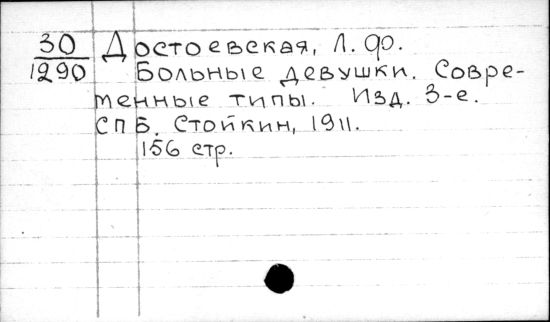 30 Достоевская, Л. Ф.
1290 Больные девушки. Совре-
менные типы. Изд. 3-е.
СПБ, Стойкин, 1911.
156 стр.